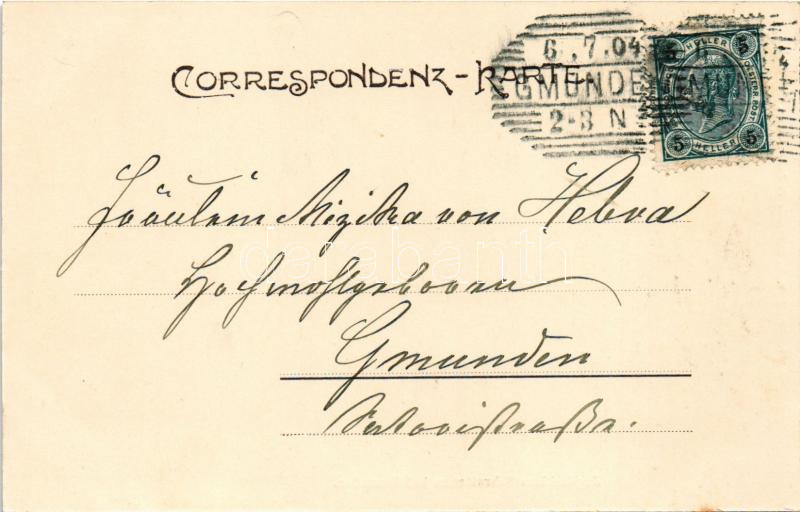 CORRESPONDENZ-KARTE
6.7.04
GMUNDEN
2-3 N
5 HELLER 5
5 HELLER 5
Fräulein Mizika von Helva
Hochwohlgeboren
Gmunden
Satoristraße.
darabanth